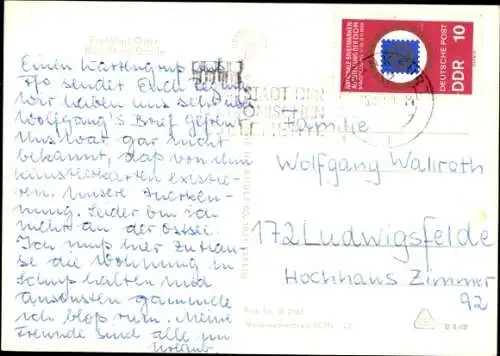 Frankfurt Oder
Karl-Marx-Straße
Einen Kartengruß aus
Ffo sendet Euch
Wir haben uns sehr über
Wolfgang's Brief gefreut.
Uns war gar nicht
bekannt, daß von den
Künstlerkarten existie-
ren. Unsere Anerken-
nung. Leider bin ich
nicht an der Ostsee.
Ich muß hier Zuhau-
se die Wohnung in
Schuß halten und
ansonsten gammele
ich bloß rum. Meine
Freunde sind alle im
Urlaub.
STADT DER
DEUTSCHE POST
DDR 10
Familie
Wolfgang Wallroth
172 Ludwigsfelde
Hochhaus Zimmer
92